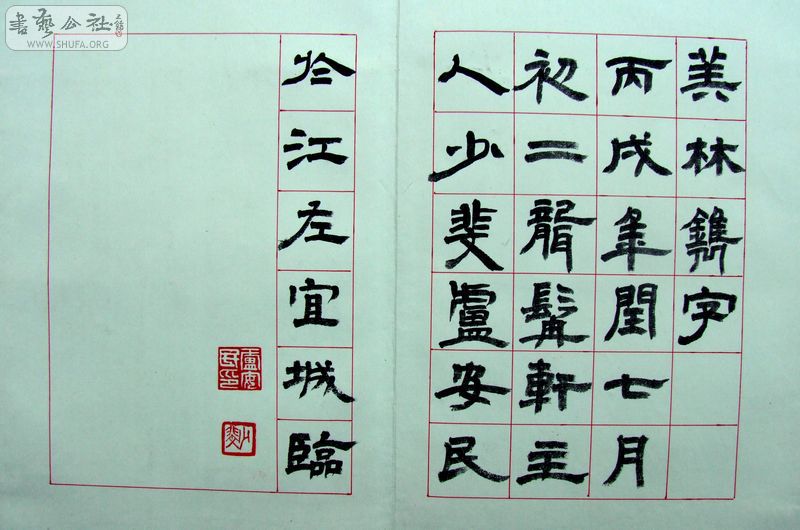 美林鐫字
丙戌年閏七月
初二聾髯軒主
人少斐盧安民
於江左宜城臨
盧安民印
少斐
書藝公社
WWW.SHUFA.ORG